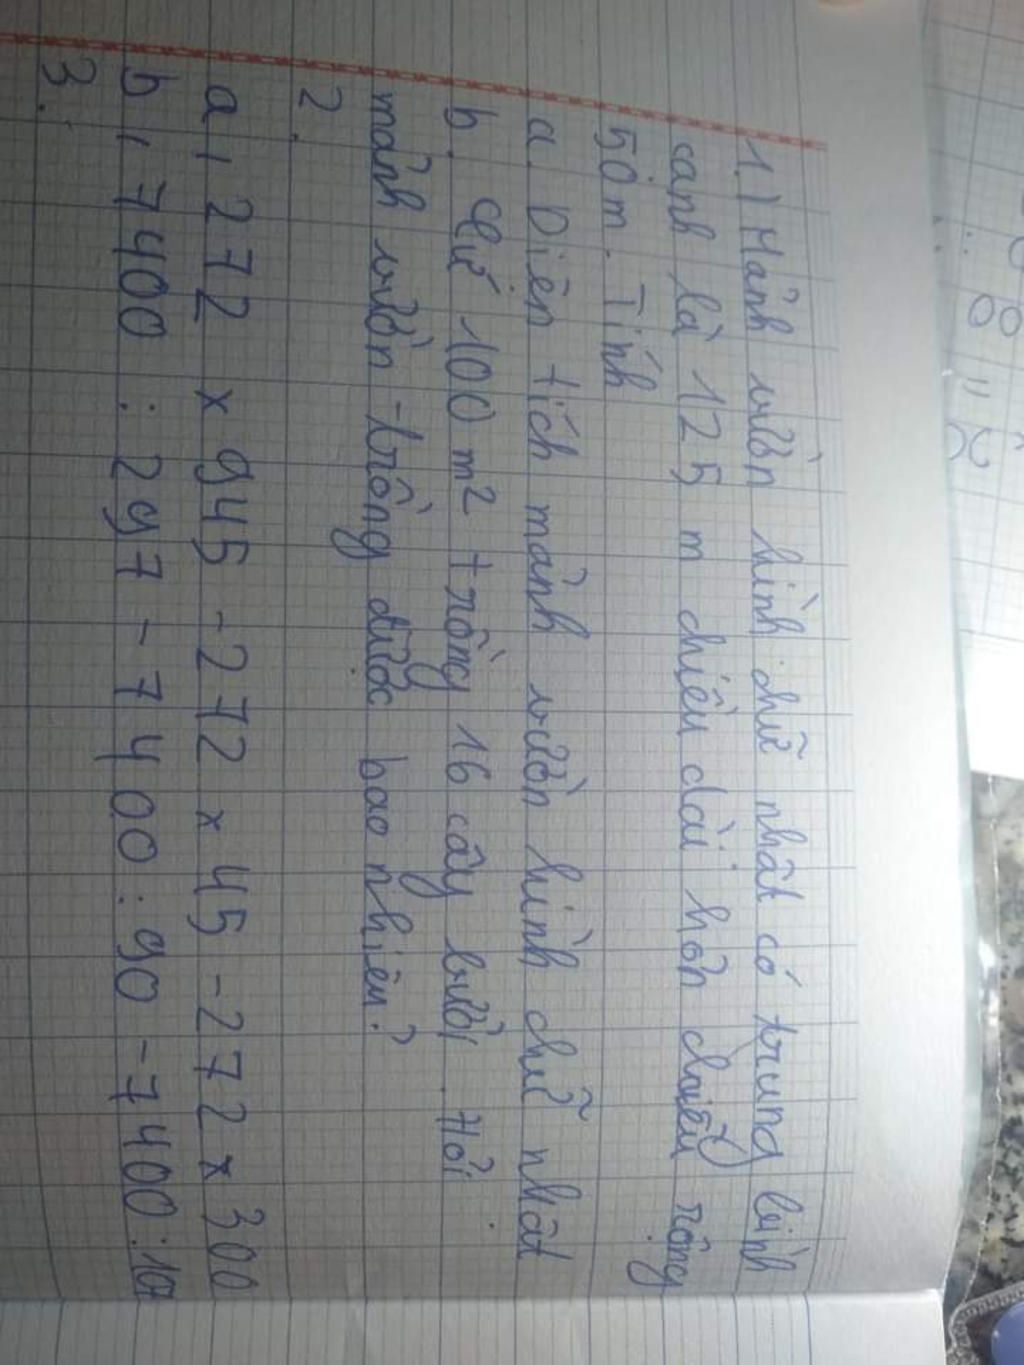 1.) Mảnh vườn hình chữ nhật có trung bình
cạnh là 125 m chiều dài hơn chiều rộng
50m. Tính
a. Diện tích mảnh vườn hình chữ nhật
b. Cứ 100 m² trồng 16 cây bưởi. Hỏi
mảnh vườn trồng được bao nhiêu?
2.
a, 272 x 945 - 272 x 45 - 272 x 300
b, 7400 : 297 - 7400 : 90 - 7400 :
3.